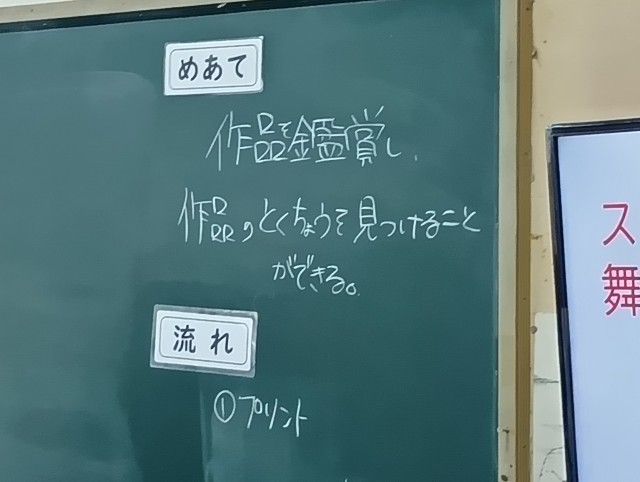 めあて
作品を鑑賞し、
作品のとくちょうを見つけること
ができる。
流れ
①プリント
ス
舞